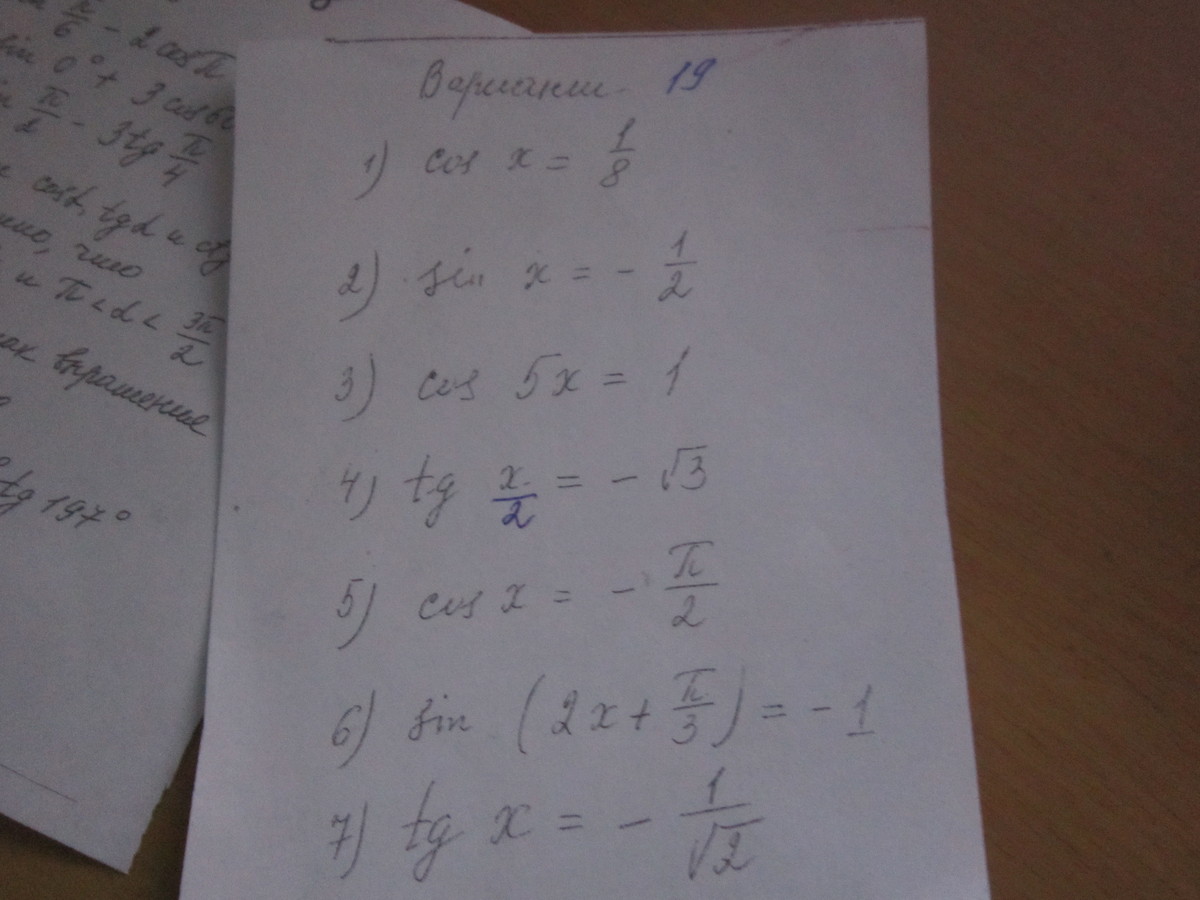 π/6 - 2 cos π
sin 0° + 3 cos 60
π/2 - 3tg π/4
cosα, tgα и ctg
что
и π < α < 3π/2
выражение
tg 197°
Вариант 19
1) cos x = 1/8
2) sin x = - 1/2
3) cos 5x = 1
4) tg x/2 = - √3
5) cos x = - π/2
6) sin (2x + π/3) = - 1
7) tg x = - 1/√2